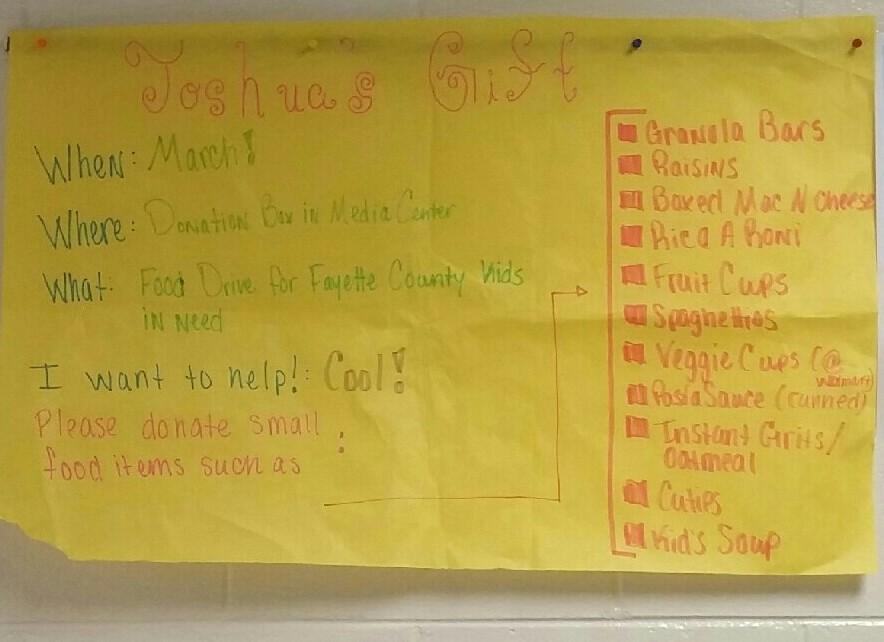 Joshua's Gift
When: March!
Where: Donation Box in Media Center
What: Food Drive for Fayette County Kids
in Need
I want to help!: Cool!
Please donate small
food items such as :
Granola Bars
Raisins
Boxed Mac N Cheese
Rice A Roni
Fruit Cups
Spaghettios
Veggie Cups (@
Walmart)
Pasta Sauce (canned)
Instant Grits/
Oatmeal
Cuties
Kid's Soup